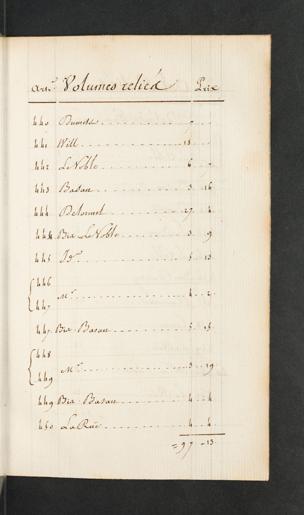 Art. Volumes reliés Prix
440 Dumesé
441 Will 13
442 Le Noble 6
443 Basan 3 16
444 Delonnel 27 4
444 Bis Le Noble 3 9
445 Id. 5 13
446
447 Mr. 4 2
447 Bis Basan 5 15
448
449 Mr. 3 19
449 Bis Basan 4 4
450 La Rue 4 4
= 97 = 13